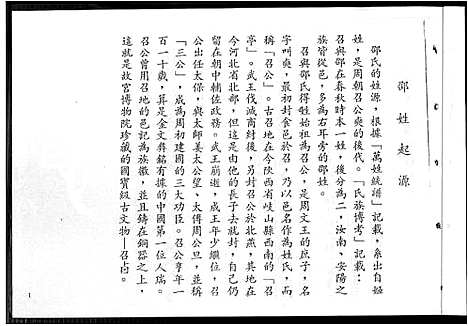 邵姓起源
邵氏的姓源，根據「萬姓統譜」記載，系出自姬
姓，是周朝召公奭的後代。「氏族博考」記載：
召與邵在春秋時本一姓，後分為二，汝南、安陽之
族皆從邑，多為右耳旁的邵姓。
召與邵氏得姓始祖為召公，是周文王的庶子，名
字叫奭，最初封食邑於召，乃以邑名作為姓氏，而
稱「召公」。古召地在今陝西省岐山縣西南的「召
亭」。武王伐滅商紂後，另封召公於北燕，其地在
今河北省北部，但這是由他的長子去就封，自己仍
留在朝中輔佐政務。武王崩逝，成王年少繼位，召
公出任太保，與太師姜太公望、太傅周公旦，並稱
「三公」，成為周初建國的三大功臣。召公享年一
百一十歲，算是金文彝銘有據的中國第一位人瑞。
召公曾用召地的邑記為族徽，並且鑄在銅器之上，
這就是故宮博物院珍藏的國寶級古文物—召卣。
1